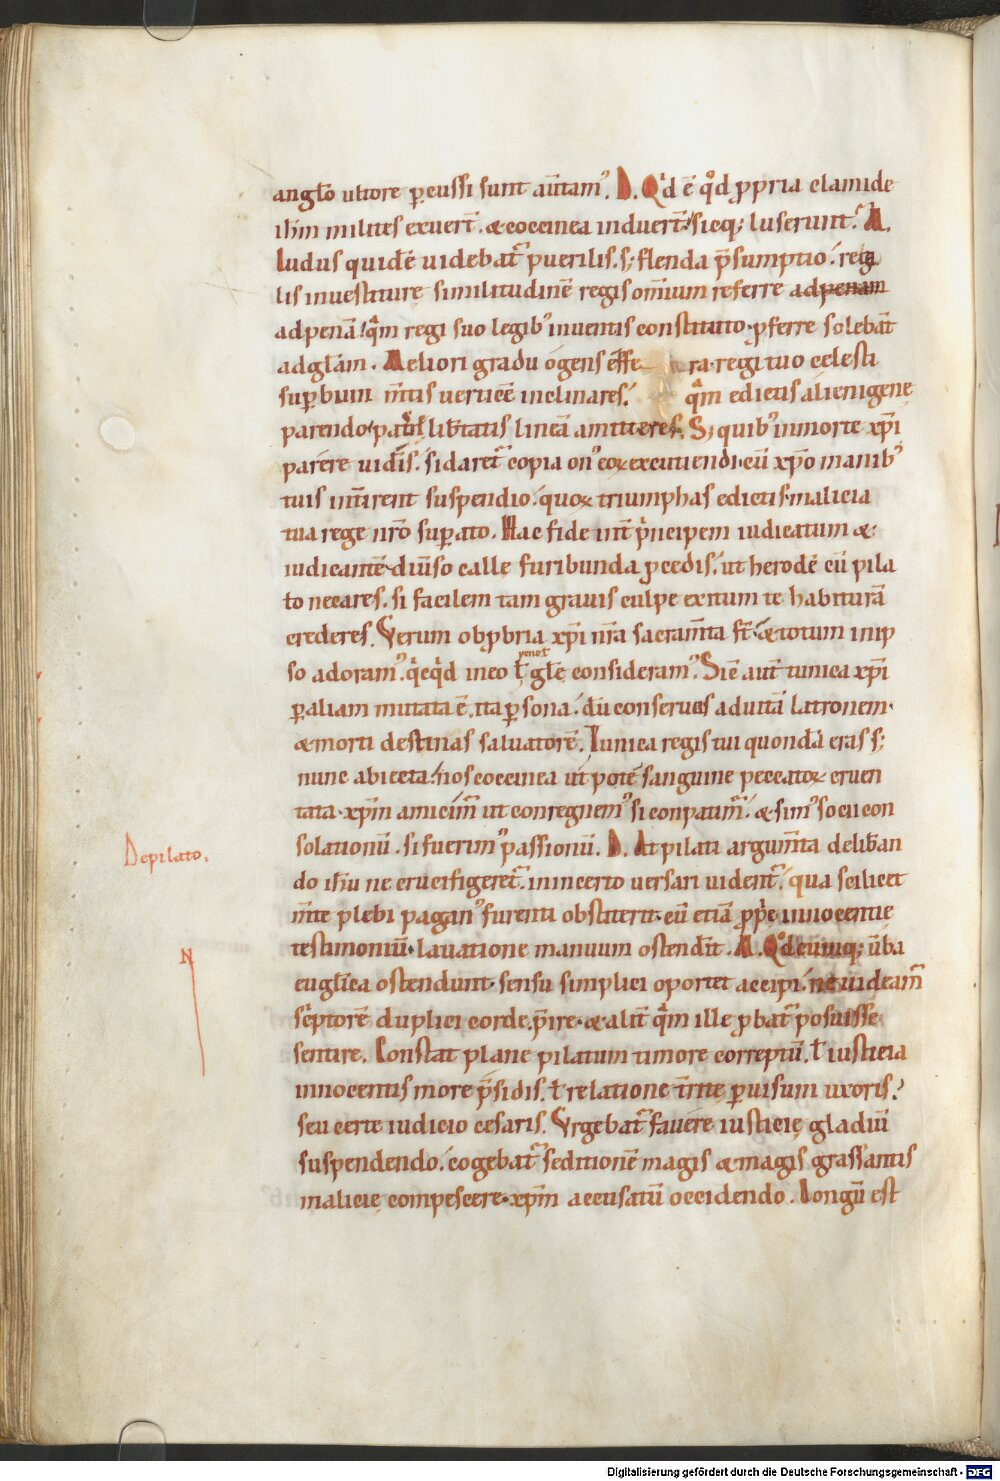 anglo ultore ꝑcussi sunt aūtam᾿. D. Qͥd ē qͦd ꝓpria clamide
ih̄m milites exuer̄t. & coccinea induer̄t sicq; luserunt. A.
Ludus quidē uidebat᾿ puerilis. s; flenda p̄sumptio. rega
lis inuestiturę similitudinē regis om̄ium referre adpenam
adpenā qͣm regi suo legib᾿ inuentis constituto ꝓferre solebāt
adgl̄am. Meliori gradu o gens eff̄e ra regi tuo celesti
suꝑbum m̄tis uerticē inclinares. qͣm edictis alienigenę
parendo lib̄tatis lineā amitteres. S; quib᾿ inmorte xp̄i
parere uid̄is. si daret᾿ copia on᾿ eoꝝ excutiendi. cū xp̄o manib᾿
tuis int̄irent suspendio. quoꝝ triumphas edictis malicia
tua rege nr̄o suꝑato. Hac fide int̄ pͥncipem iudicatum &
iudicantē diūso callę furibunda ꝓcedis. ut herodē cū pila
to necares. si facilem tam grauis culpe exitum te habiturā
crederes. Verum obꝓbria xp̄i nr̄a sacram̄ta st̄. & totum inip
so adoram᾿. qͥcqͥd ineo ł glē consideram᾿. Sic̄ aut̄ tunica xp̄i
ꝑ aliam mutata ē. ita ꝑsona. dū conseruas aduitā latronem.
& morti destinas saluatorē. Tunica regis tui quondā eras s;
nunc abiecta. nos coccinea ut potē sanguine peccatoꝝ cruen
tata. xp̄m amicim᾿ ut conregnem᾿ si conpatim᾿. & sim᾿ socii con
solationū. si fuerim᾿ passionū. D. At pilati argum̄ta delib̄an
do ih̄u ne crucifigeret᾿. inincerto uersari uident᾿. qua scilicet
m̄te plebi pagan᾿ furenti obstiterit. cū etiā ꝓp̄e innocentie
testimoniū lauatione manuum ostend̄it. M. Qͦdcumq; ūba
euglica ostendunt. sensu simplici oportet accipi. ne uideam᾿
scͥptorē duplici corde p̄ire. & alit̄ qͣm ille ꝓbat᾿ posuisse
sentire. Constat plane pilatum timore correptū. ł iusticia
innocentis more p̄sidis. ł relatione ꝑ uisum uxoris.
seu certe iudicio cesaris. Vrgebat᾿ fauere iusticię gladiū
suspendendo. cogebat᾿ seditionē magis & magis grassantis
malicię compescere. xp̄m accusatū occidendo. Longū est
Depilato.
N
Digitalisierung gefördert durch die Deutsche Forschungsgemeinschaft - DFG